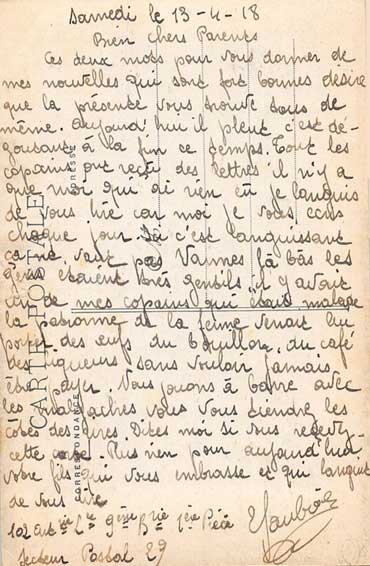 Samedi le 13-4-18
Bien chers Parents
Ces deux mots pour vous donner de
mes nouvelles qui sont fort bonnes désire
que la présente vous trouve tous de
même. Aujourd'hui il pleut c'est dé-
goutant à la fin ce temps. Tout les
copains ont reçu des lettres il n'y a
que moi qui ai rien eu je languis
de vous lire car moi je vous écris
chaque jour. Ici c'est languissant
ça ne vaut pas Vannes là bas les
gens étaient très gentils il y avait
un de mes copains qui était malade
la patronne de la ferme venait lui
porter des œufs du bouillon du café
des liqueurs sans vouloir jamais
être payer. Vous jouons à barre avec
les
cotés des Dites moi si vous recevez
cette carte. Plus rien pour aujourd'hui
votre fils qui vous embrasse et qui languit
de vous lire
102 9ème Bie 1ère Pièce
Secteur Postal 29
CARTE POSTALE
CORRESPONDANCE
ADRESSE